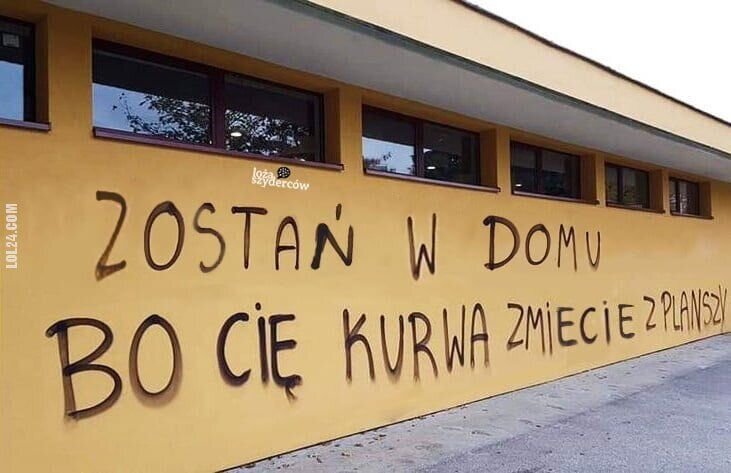 loża
szyderców
ZOSTAŃ W DOMU
BO CIĘ KURWA ZMIECIE Z PLANSZY
LOL24.COM